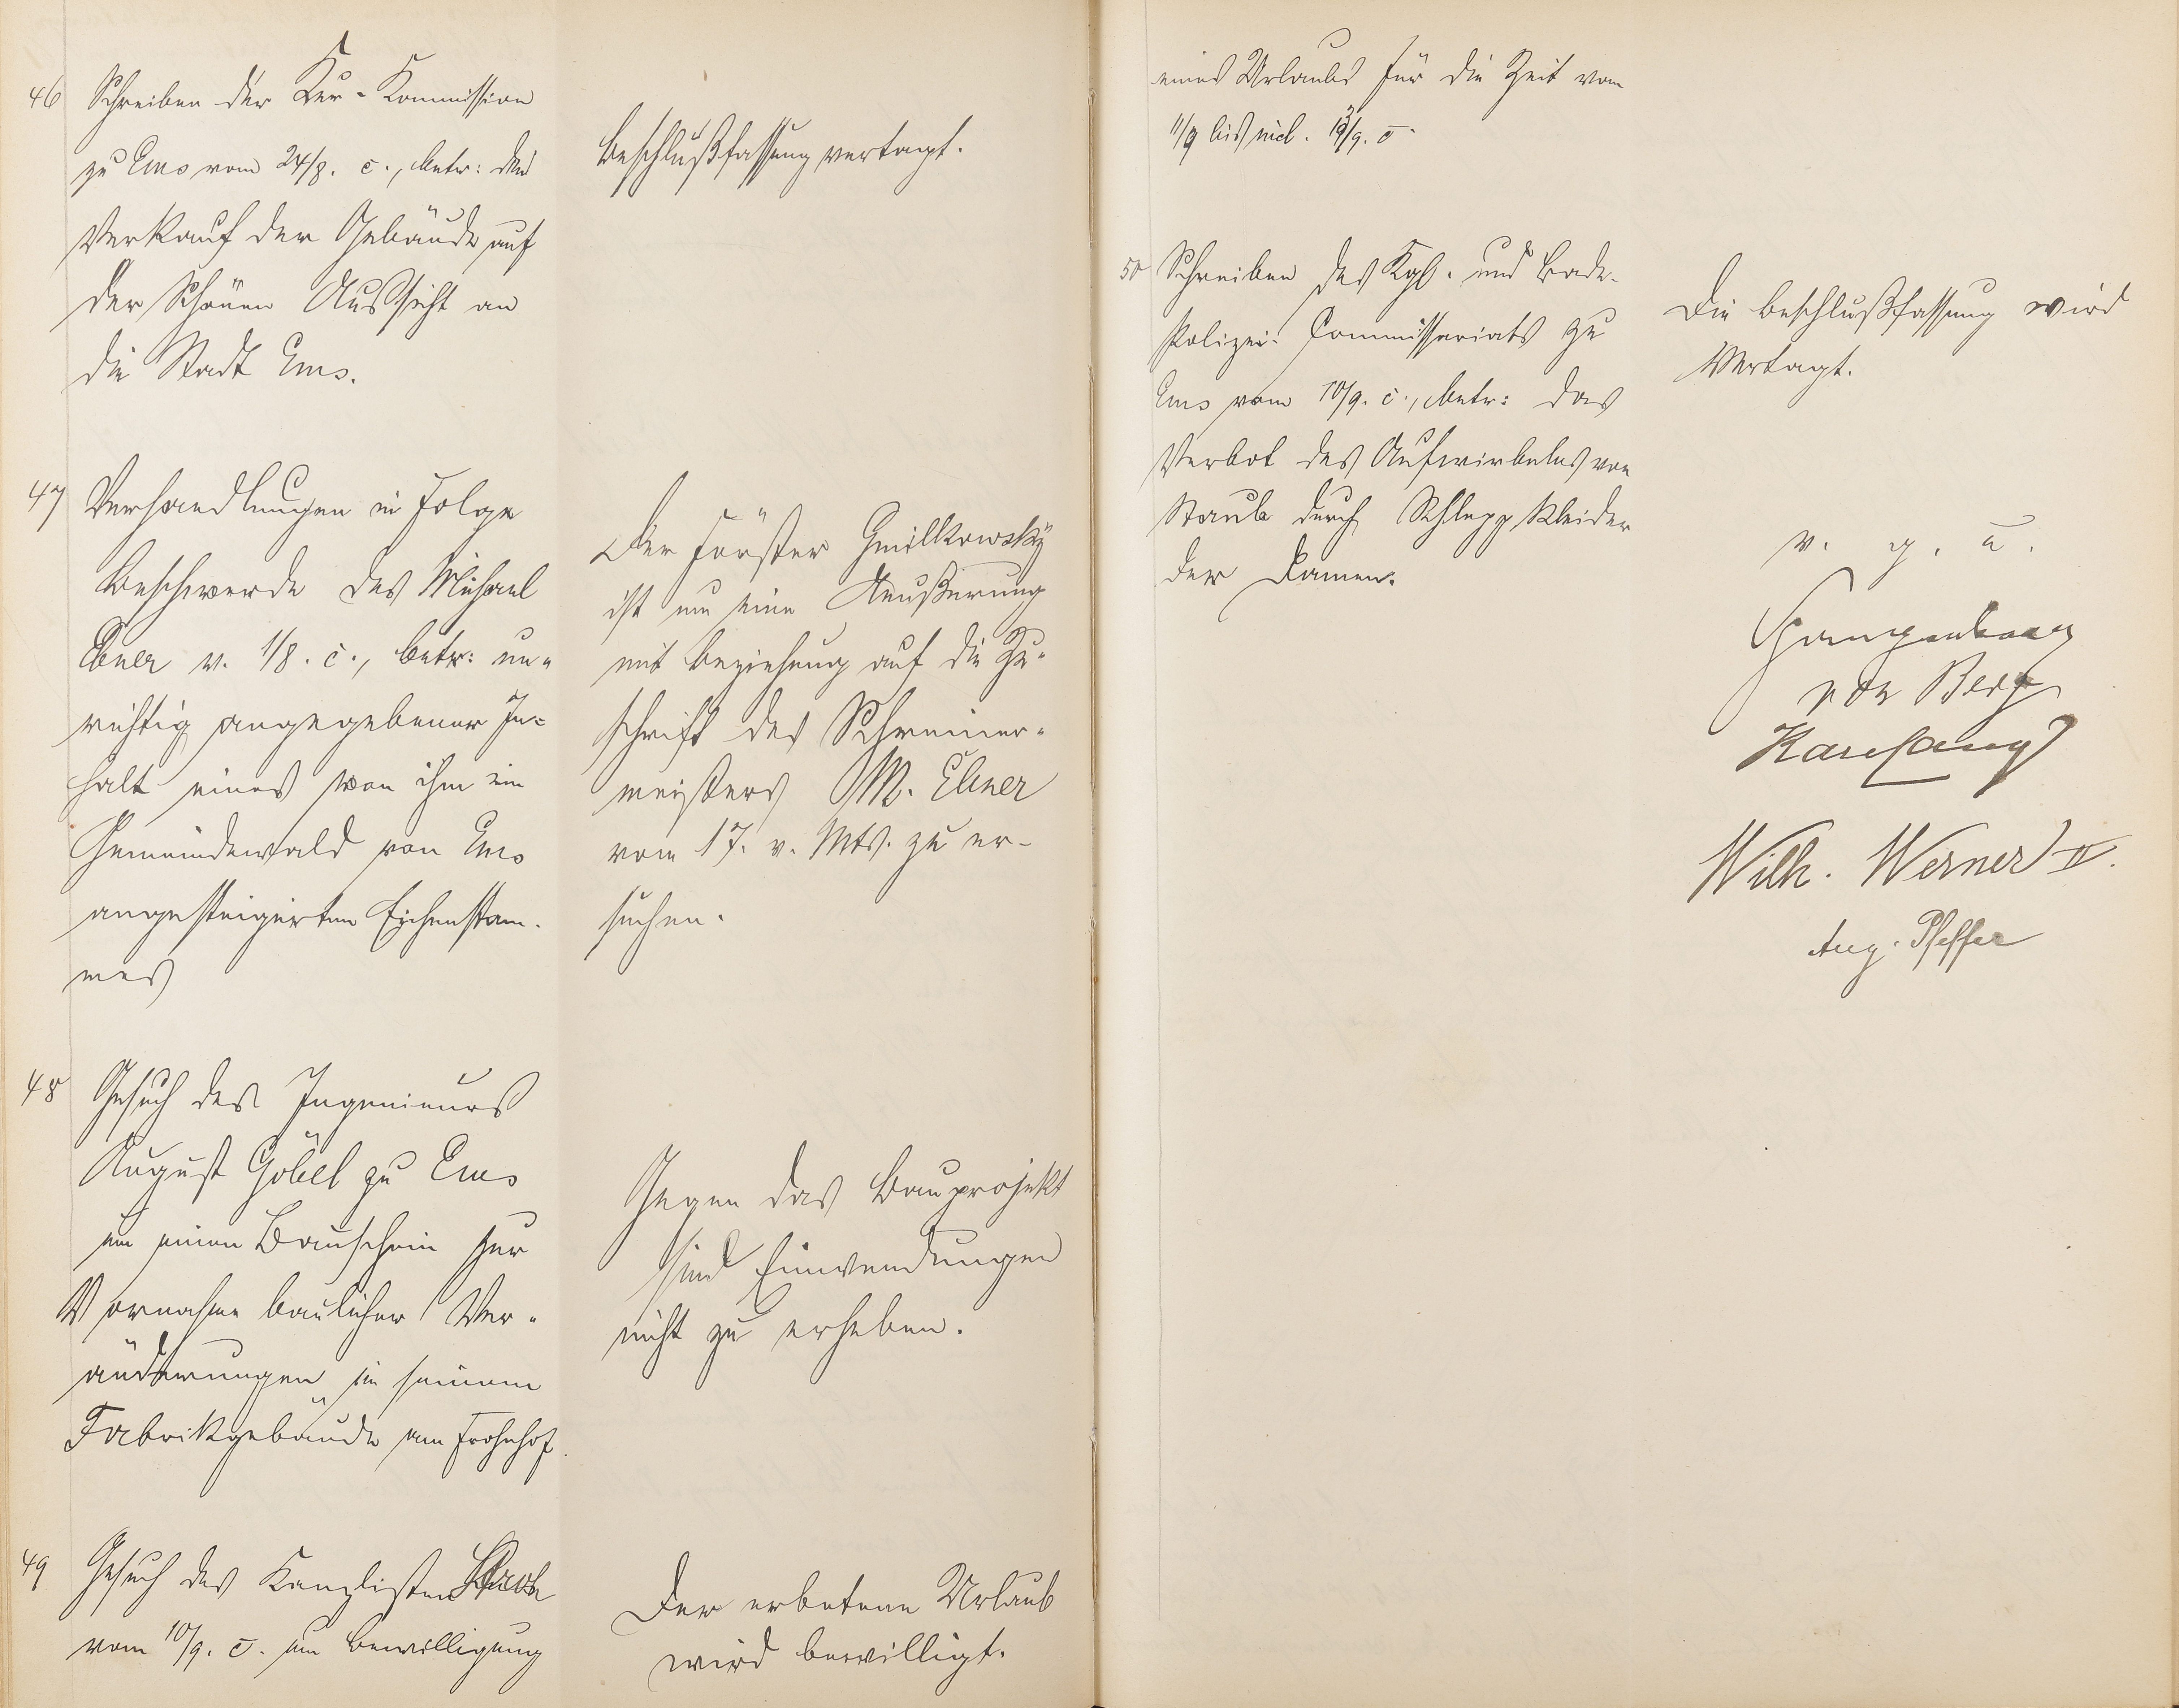 46 Schreiben der Kur-Kommission
zu Ems vom 24/8. c., betr: den
Verkauf der Gebäude auf
der Schönen Aussicht an
die Stadt Ems.
Beschlußfassung vertagt.
47 Verhandlungen in Folge
Beschwerde des Michael
Ebner v. 1/8. c., betr: un-
richtig angegebener In-
halt eines von ihm im
Gemeindewald von Ems
angesteigerten Eichenstam-
mes
Der Förster Gmilkowsky
ist um eine Aeußerung
mit Beziehung auf die Zu-
schrift des Schreiner-
meisters M. Ebner
vom 17. v. Mts. zu er-
suchen.
48 Gesuch des Ingenieurs
August Göbel zu Ems
um einen Bauschein zur
Vornahme baulicher Ver-
änderungen in seinem
Fabrikgebäude am Frohnhof.
Gegen das Bauprojekt
sind Einwendungen
nicht zu erheben.
49 Gesuch des Kanzlisten
vom 10/9. c. um Bewilligung
Der erbetene Urlaub
wird bewilligt.
eines Urlaubs für die Zeit vom
11/9 bis incl. /9. c.
50 Schreiben des Kgl. und Bade-
Polizei-Commissariats zu
Ems vom 10/9. c., betr: das
Verbot des Aufwirbelns von
Staub durch Schleppkleider
der Damen.
Die Beschlußfassung wird
Vertagt.
v. g. u.
von Berg
Karl Lang
Wilh. Werner II.
Aug. Pfeffer